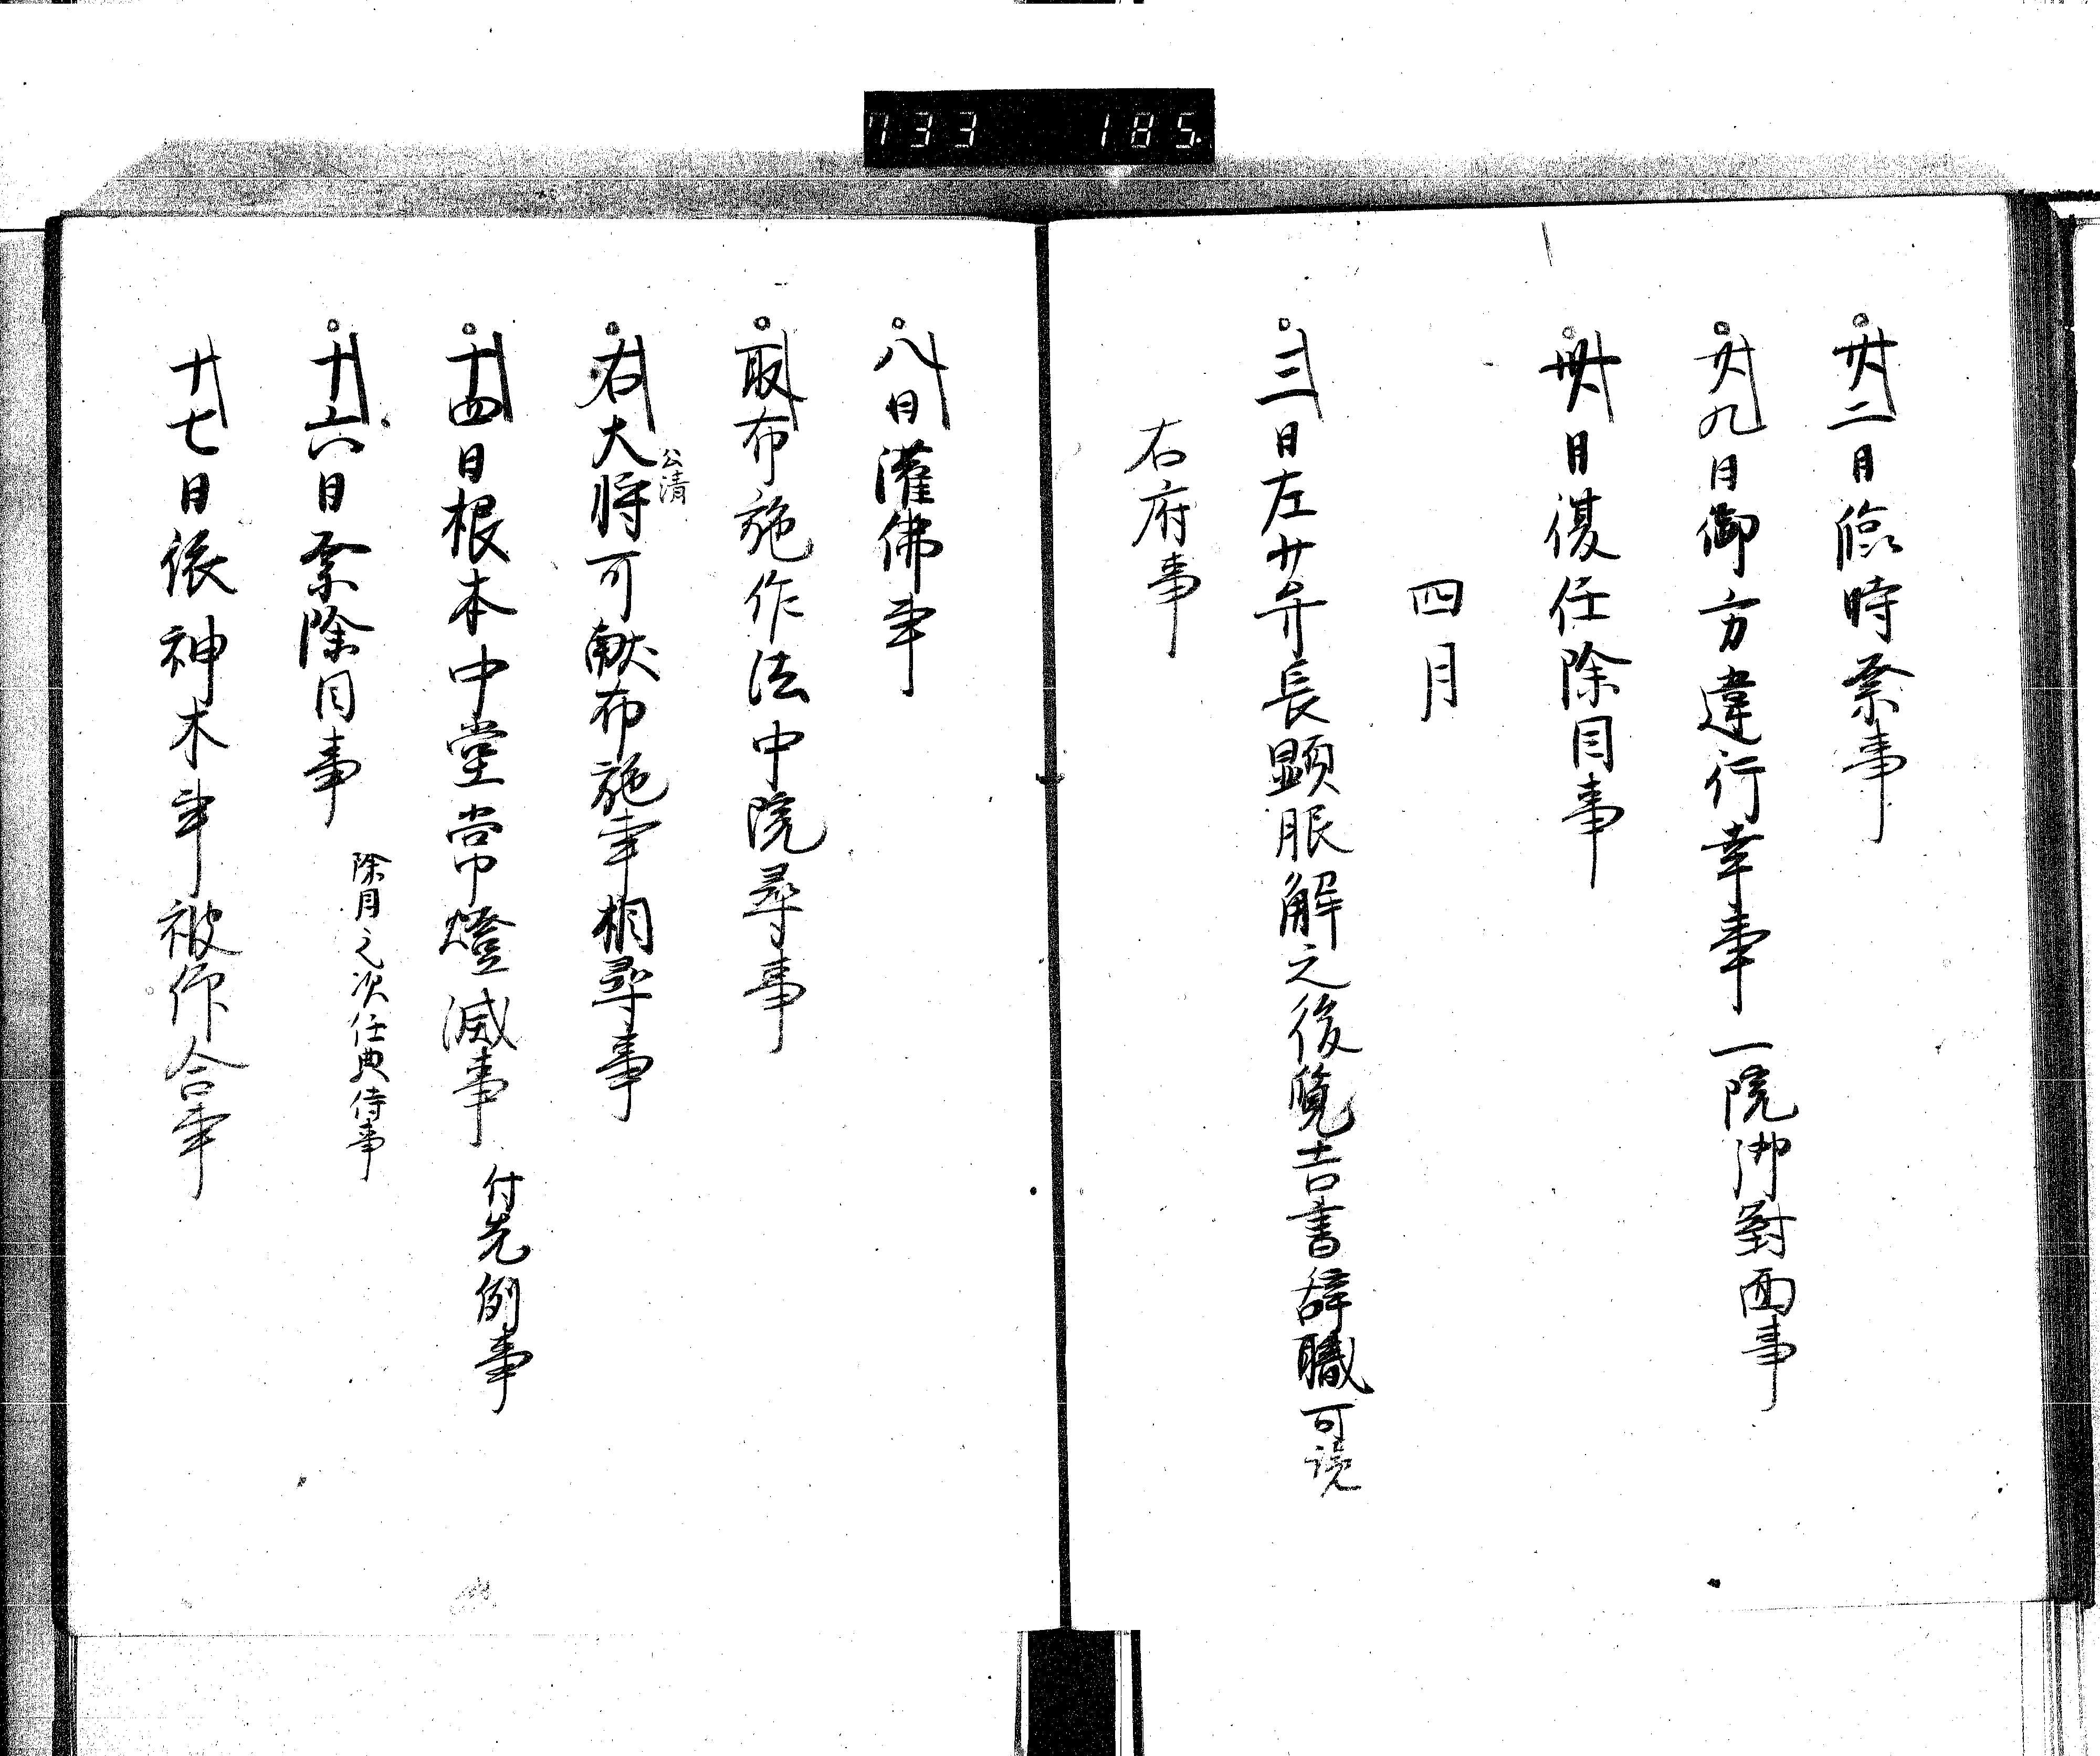 733 185
廿二日臨時祭事
廿九日御方違行幸事 一院御對面事
卅日復任除目事
四月
三日左少弁長顕服解之後覧吉書辞職可覧
右府事
八日灌佛事
取布施作法中院尋事
右大将公清可献布施事相尋事
十四日根本中堂常燈滅事 付先例事
十六日祭除目事 除目之次任典侍事
十七日依神木事被仰合事